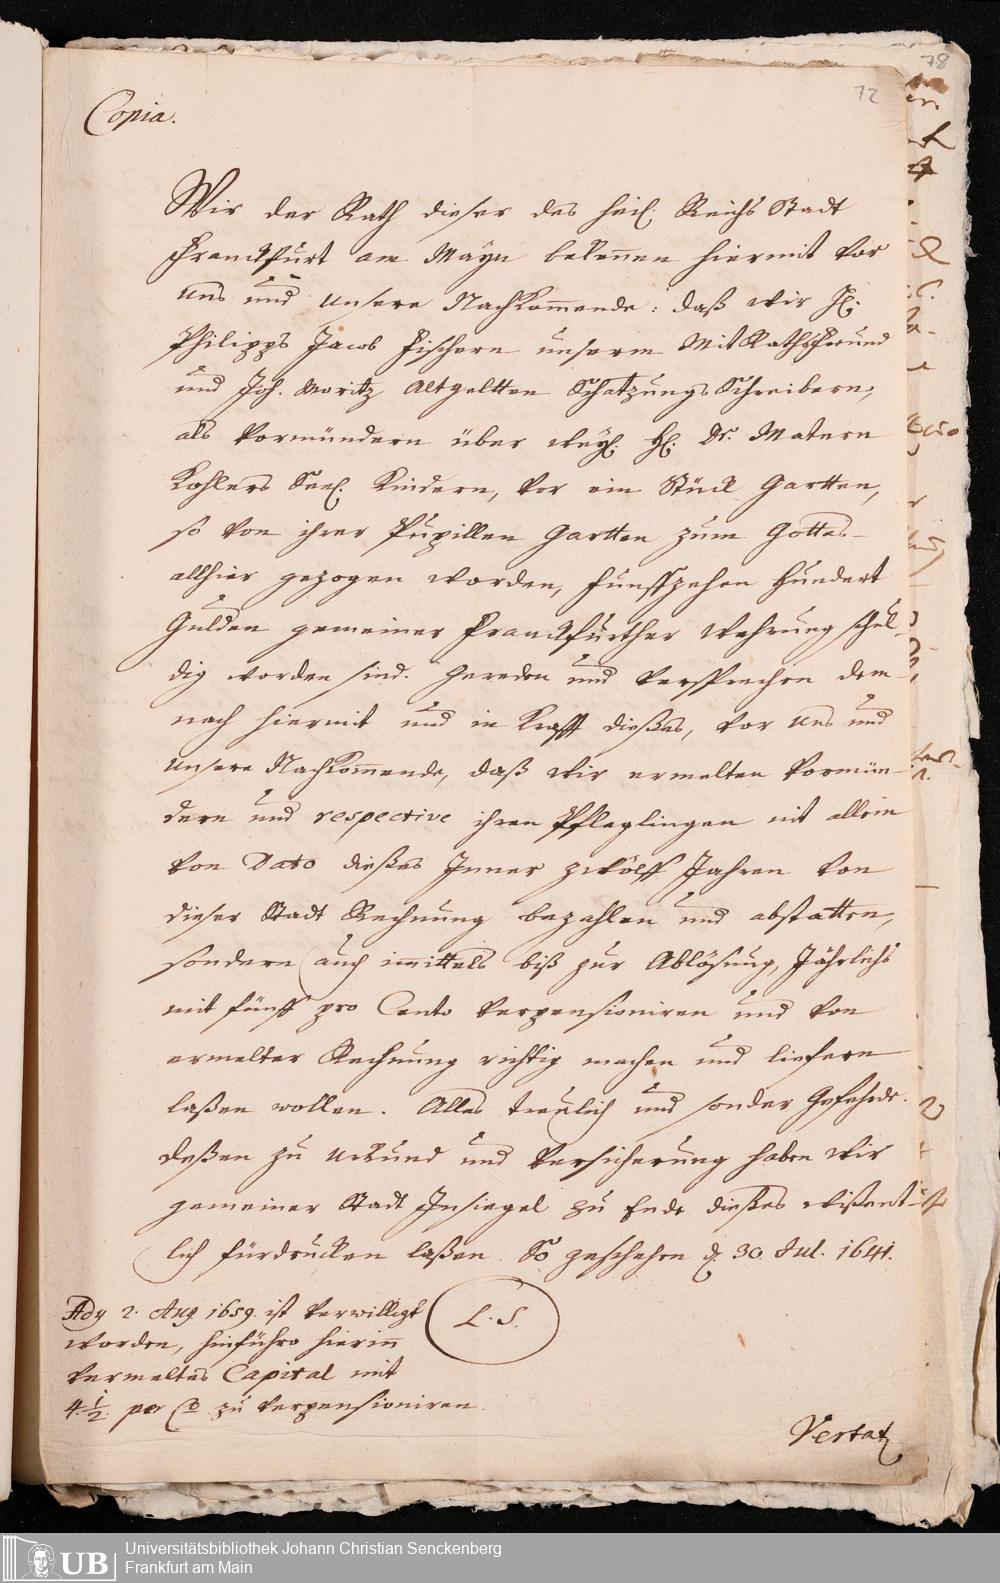 78
72
Copia.
Wir der Rath dieser des heil. Reichs Stadt
Franckfurt am Mayn bekennen hiermit vor
uns und unsere Nachkommende: daß wir H.
Philipps Jacob Fischern unserm MitRathsfreund
und Joh. Moritz Altgeltten SchatzungsSchreibern,
als Vormündern über weyl. H. Dr. Matern
Kohlers Seel. Kindern, vor ein Stück Gartten,
so von ihrer Pupillen Gartten zum Gottes-
allhier gezogen worden, fünffzehen hundert
Gulden gemeiner Franckfurther Wehrung schul-
dig worden sind. Gereden und versprechen dem-
nach hiermit und in Krafft dießes, vor uns und
unsere Nachkommende, daß wir ermelten Vormün-
dern und respective ihren Pfleglingen nit allein
von Dato dießes Inner zwölff Jahren von
dieser Stadt Rechnung bezahlen und abstatten,
sondern auch immittels biß zur Ablösung, Jährlichs
mit fünff pro Cento verpensioniren und von
ermelter Rechnung richtig machen und liefern
laßen wollen. Alles treulich und sonder Gefehrde.
deßen zu Urkund und Versicherung haben wir
gemeiner Stadt Insiegel zu Ende dießes wißent-
lich fürdrucken laßen. So geschehen d. 30. Jul. 1641.
L. S.
Ady 2. Aug. 1659. ist verwilligt
worden, hinführo hierinn
vermeltes Capital mit
4 1/2 per Co zu verpensioniren.
Vertat
UB
Universitätsbibliothek Johann Christian Senckenberg
Frankfurt am Main